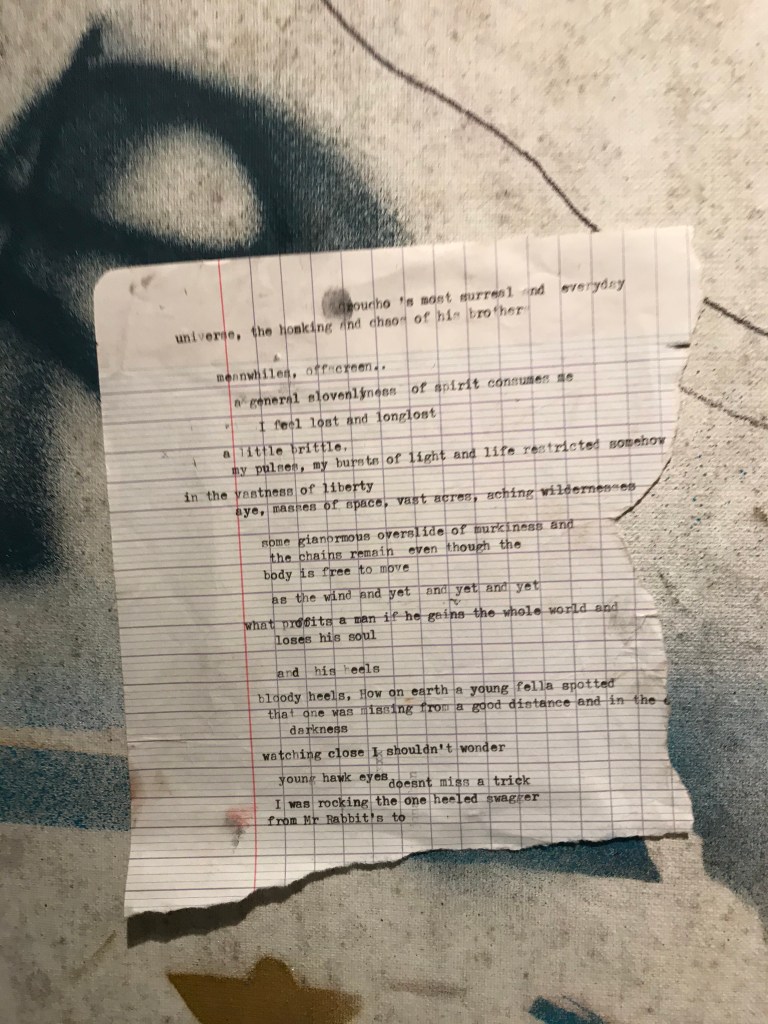 Groucho 's most surreal and everyday
universe, the honking and chaos of his brother
meanwhiles, offscreen..
a general slovenlyness of spirit consumes me
I feel lost and longlost
a little brittle.
my pulses, my bursts of light and life restricted somehow
in the vastness of liberty
aye, masses of space, vast acres, aching wildernesses
some gianormous overslide of murkiness and
the chains remain even though the
body is free to move
as the wind and yet and yet and yet
what profits a man if he gains the whole world and
loses his soul
and his heels
bloody heels, How on earth a young fella spotted
that one was missing from a good distance and in the
darkness
watching close I shouldn't wonder
young hawk eyes doesnt miss a trick
I was rocking the one heeled swagger
from Mr Rabbit's to